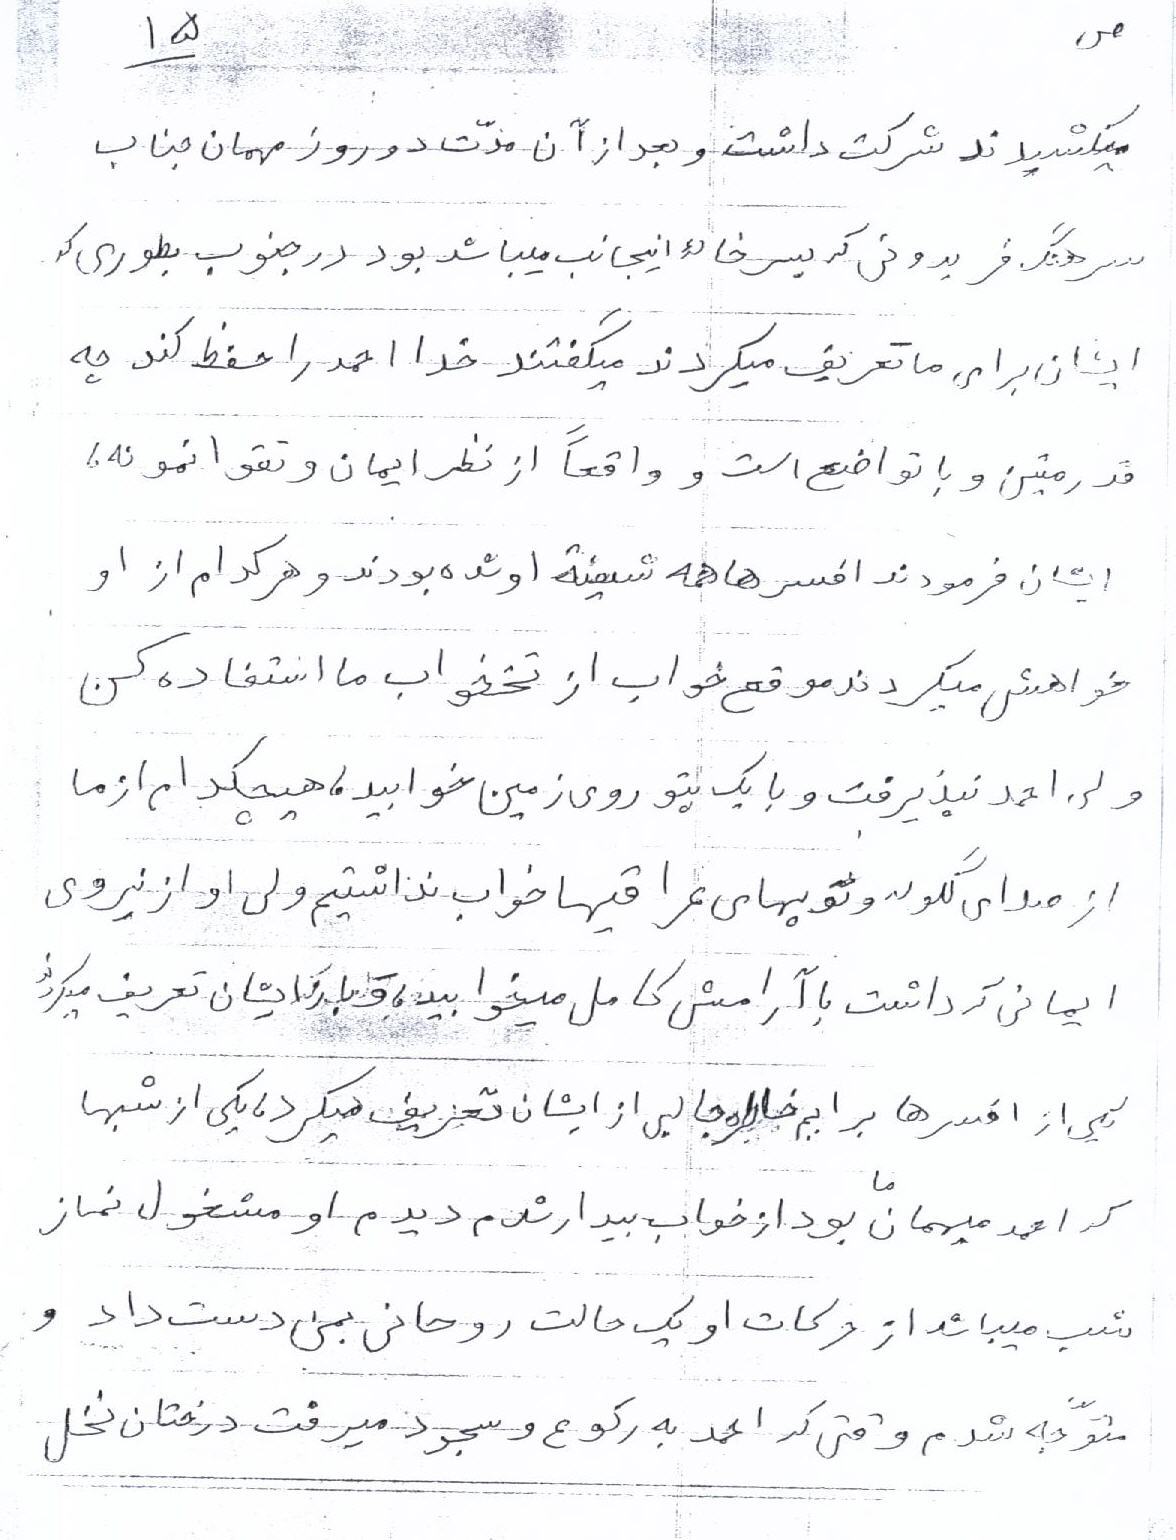 ص ۱۵
میکشیدند شرکت داشت و بعد از آن مدّت دو روز مهمان جناب
سرهنگ فریدونی که پسر خالهٔ اینجانب میباشد بود در جنوب بطوری که
ایشان برای ما تعریف میکردند میگفتند خدا احمد را حفظ کند چه
قدر متین و با تواضع است و واقعاً از نظر ایمان و تقوا نمونه،
ایشان فرمودند افسرها همه شیفتهٔ او شده بودند و هر کدام از او
خواهش میکردند موقع خواب از تختخواب ما استفاده کن
ولی احمد نپذیرفت و با یک پتو روی زمین خوابید، هیچکدام از ما
از صدای گلوله و توپهای عراقیها خواب نداشتیم ولی او از نیروی
ایمانی که داشت با آرامش کامل میخوابید، ایشان تعریف میکردند
یکی از افسرها برایم خاطره جالبی از ایشان تعریف میکرد، یکی از شبها
که احمد میهمان ما بود از خواب بیدار شدم دیدم او مشغول نماز
شب میباشد از حرکات او یک حالت روحانی بمن دست داد و
متوّجه شدم وقتی که احمد به رکوع و سجود میرفت درختان نخل